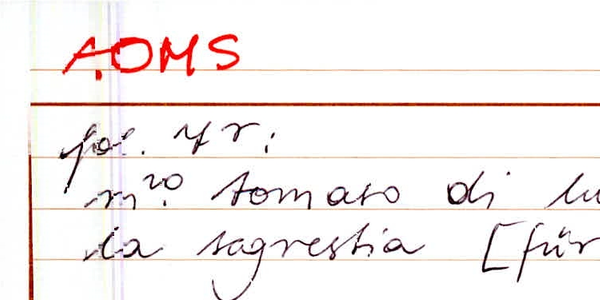 AOMS
fol. 7r:
m.ro tomaso di lu
la sagrestia [für